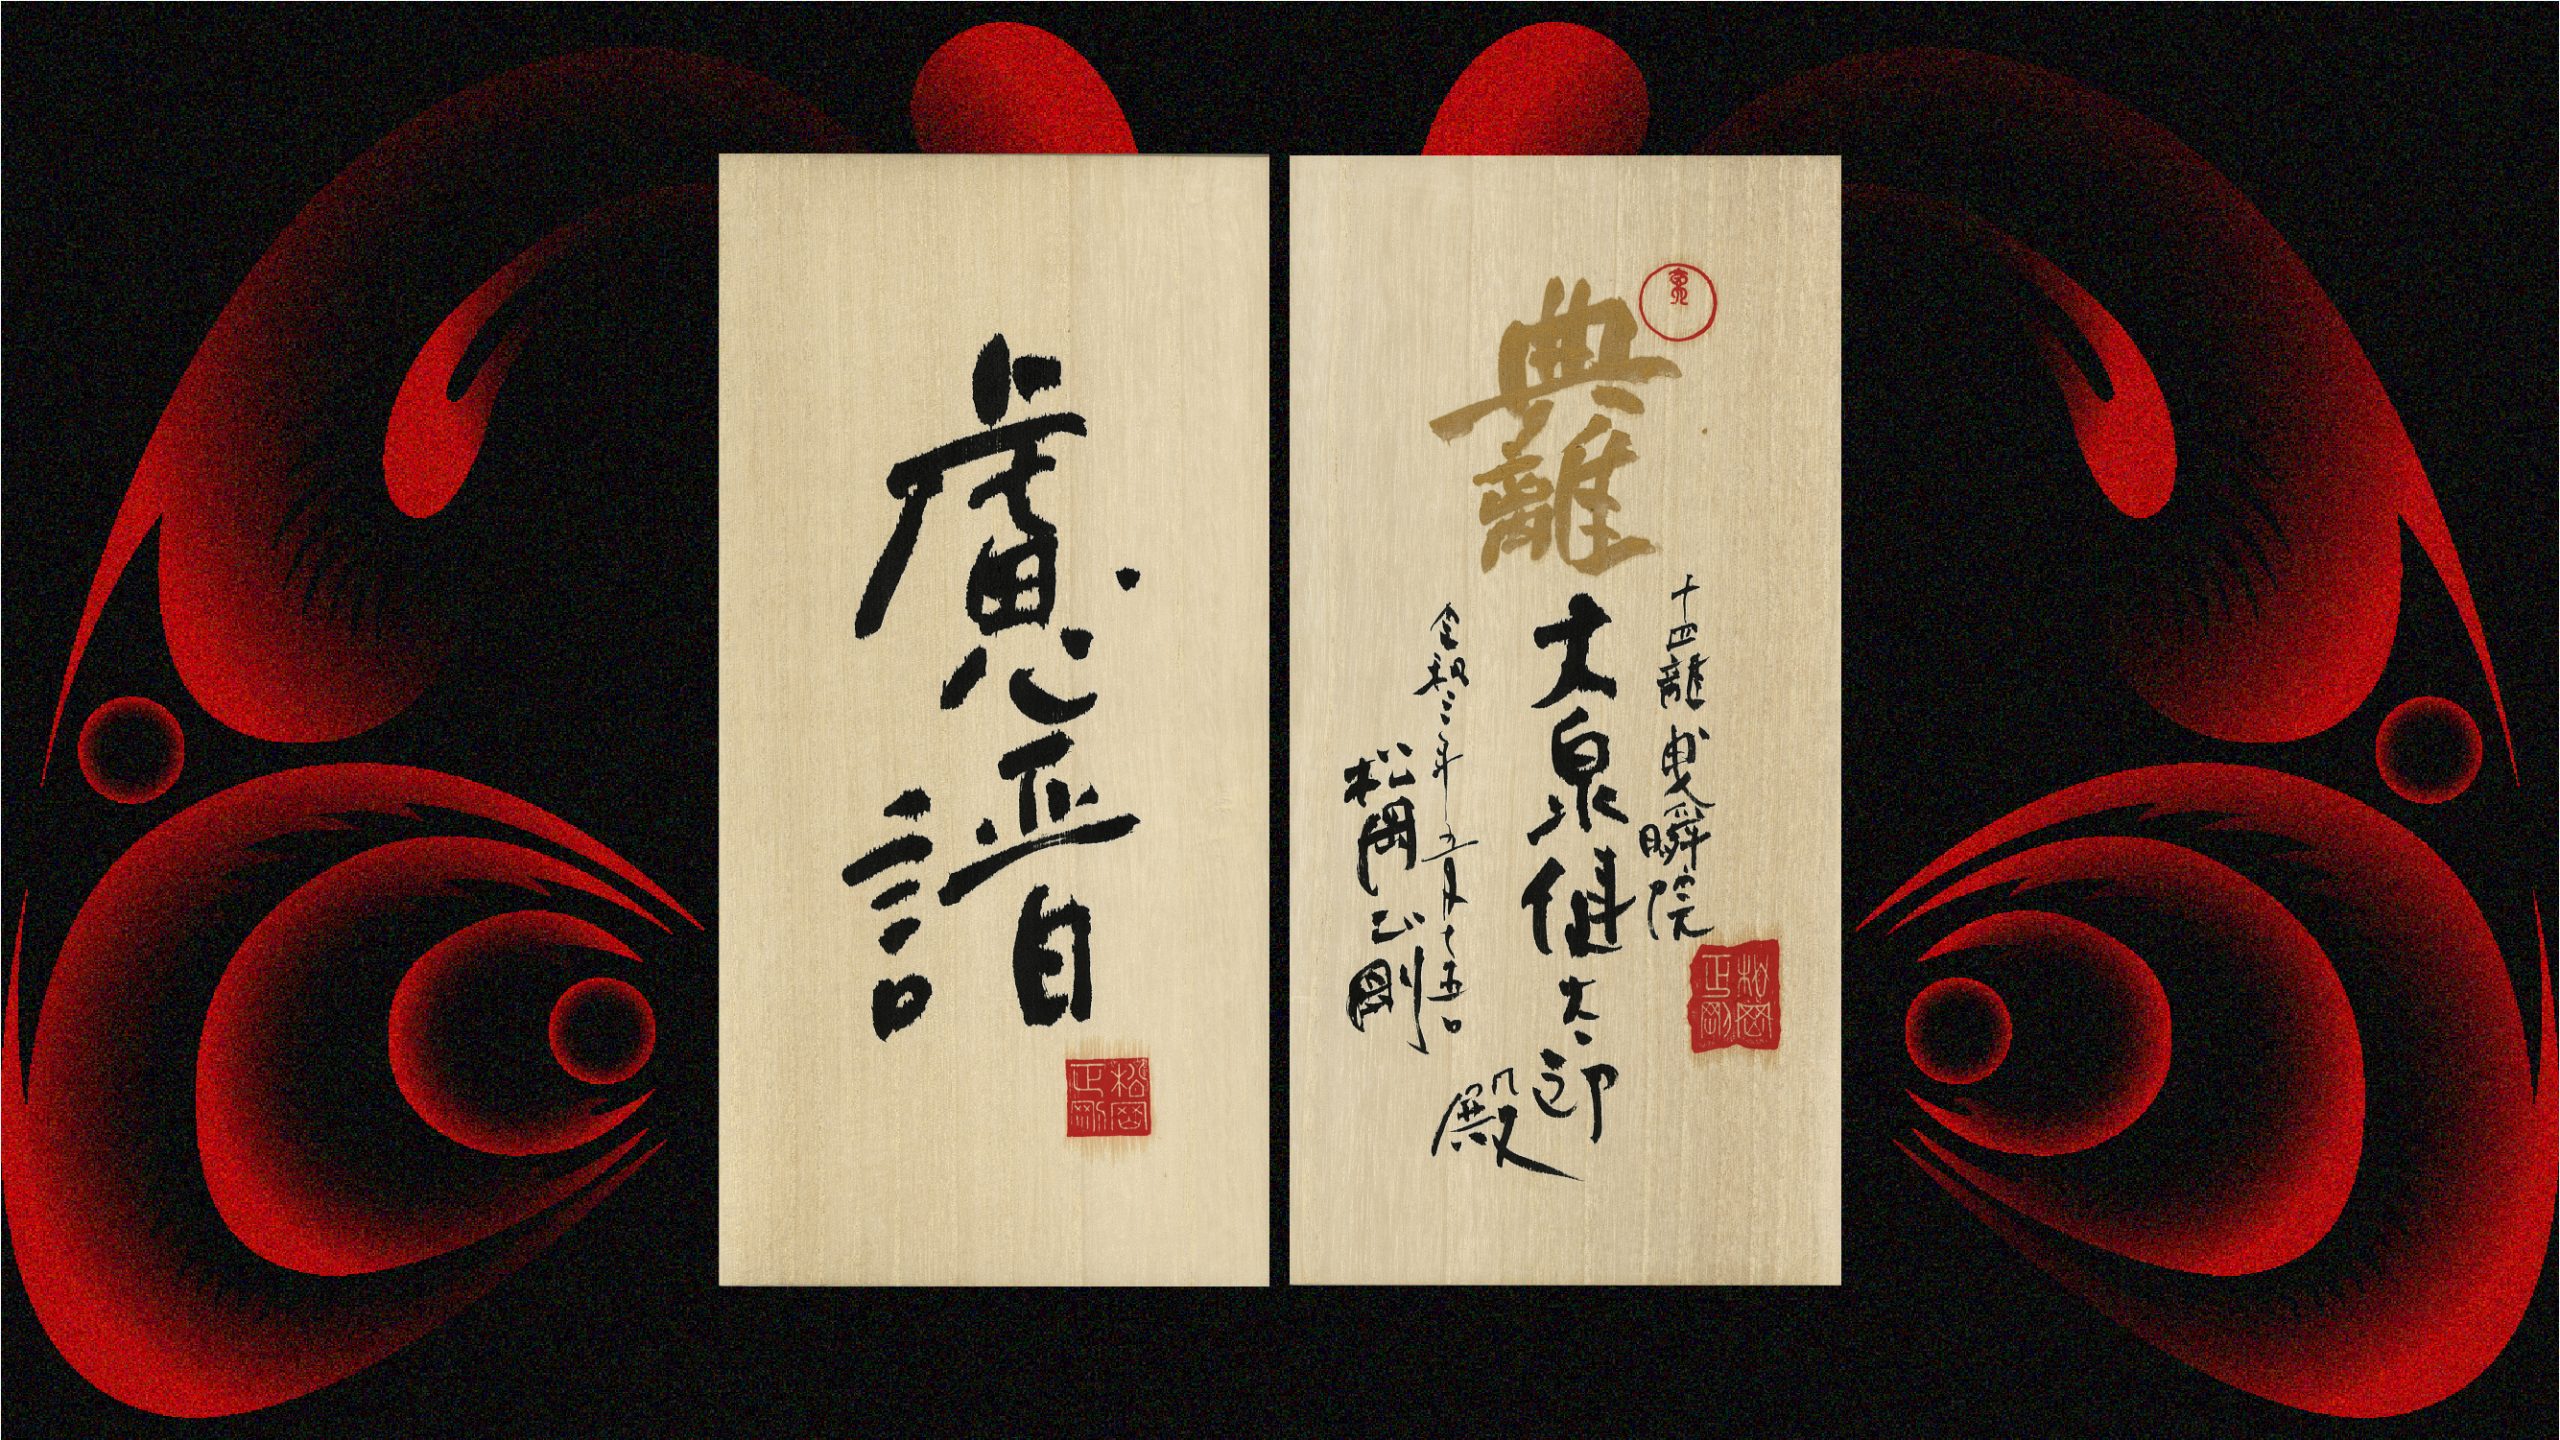 典離
十四離 曳瞬院
大泉健太郎 殿
令和三年五月十五日
松岡正剛
松岡正剛
慮譜
松岡正剛